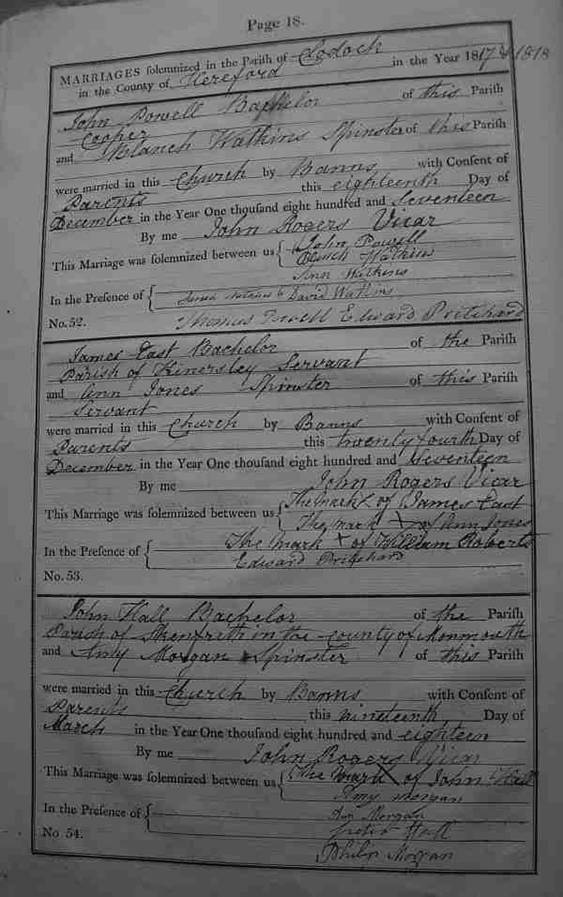 Page 18.
MARRIAGES solemnized in the Parish of Clodock
in the County of Hereford in the Year 1817 & 1818
John Powell Bachelor of this Parish
Cooper
and Blanch Watkins Spinster of this Parish
were married in this Church by Banns with Consent of
Parents this eighteenth Day of
December in the Year One thousand eight hundred and Seventeen
By me John Rogers Vicar
This Marriage was solemnized between us { John Powell
Blanch Watkins
Ann Watkins
In the Presence of { David Watkins
No. 52. Thomas Powell Edward Pritchard
James East Bachelor of the Parish
Parish of Kinersley Servant
and Ann Jones Spinster of this Parish
Servant
were married in this Church by Banns with Consent of
Parents this twenty fourth Day of
December in the Year One thousand eight hundred and Seventeen
By me John Rogers Vicar
This Marriage was solemnized between us { The mark X of James East
The mark X of Ann Jones
In the Presence of { The mark X of William Roberts
Edward Pritchard
No. 53.
John Hall Bachelor of the Parish
Parish of Skenfreth in the county of Monmouth
and Amy Morgan Spinster of this Parish
were married in this Church by Banns with Consent of
Parents this nineteenth Day of
March in the Year One thousand eight hundred and eighteen
By me John Rogers Vicar
This Marriage was solemnized between us { The mark X of John Hall
Amy Morgan
In the Presence of { Morgan
Hall
No. 54. Philip Morgan